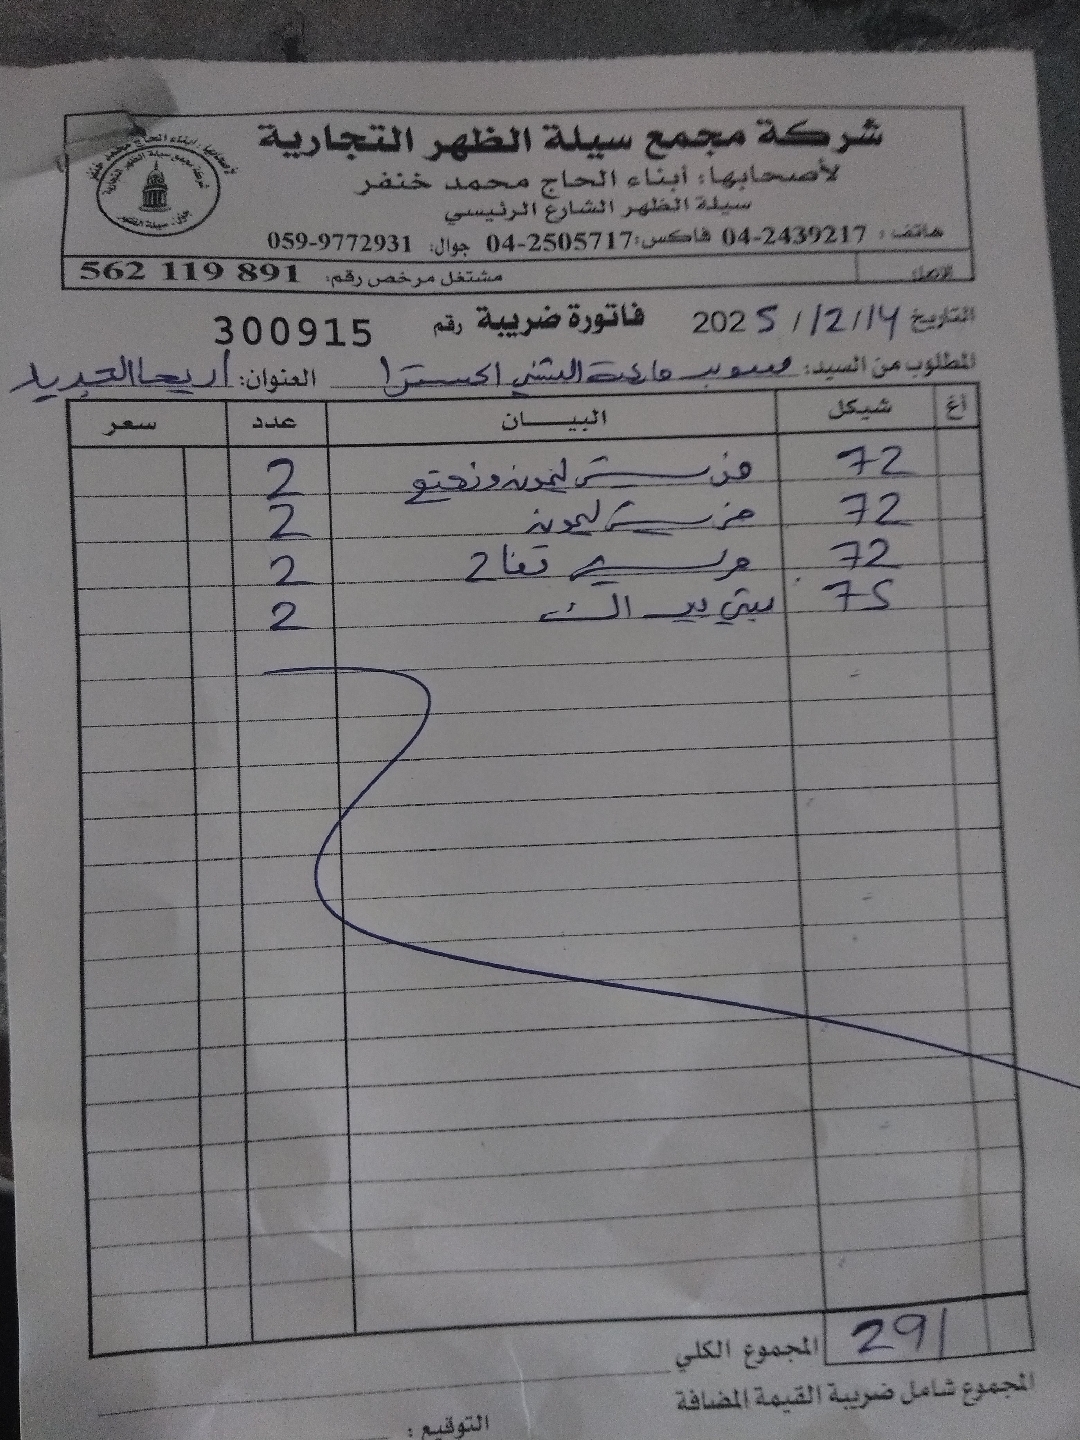 شركة مجمع سيلة الظهر التجارية
لأصحابها: أبناء الحاج محمد خنفر
سيلة الظهر الشارع الرئيسي
هاتف: 04-2439217 فاكس: 04-2505717 جوال: 059-9772931
الأصل
مشتغل مرخص رقم: 562 119 891
التاريخ 14/2/2025 فاتورة ضريبة رقم 300915
المطلوب من السيد: العنوان: أريحا الجديد
أغ شيكل البيــان عدد سعر
72 ليمون ونعنع 2
72 ليمون 2
72 تفاح 2
75 2
المجموع الكلي 291
المجموع شامل ضريبة القيمة المضافة
التوقيع: